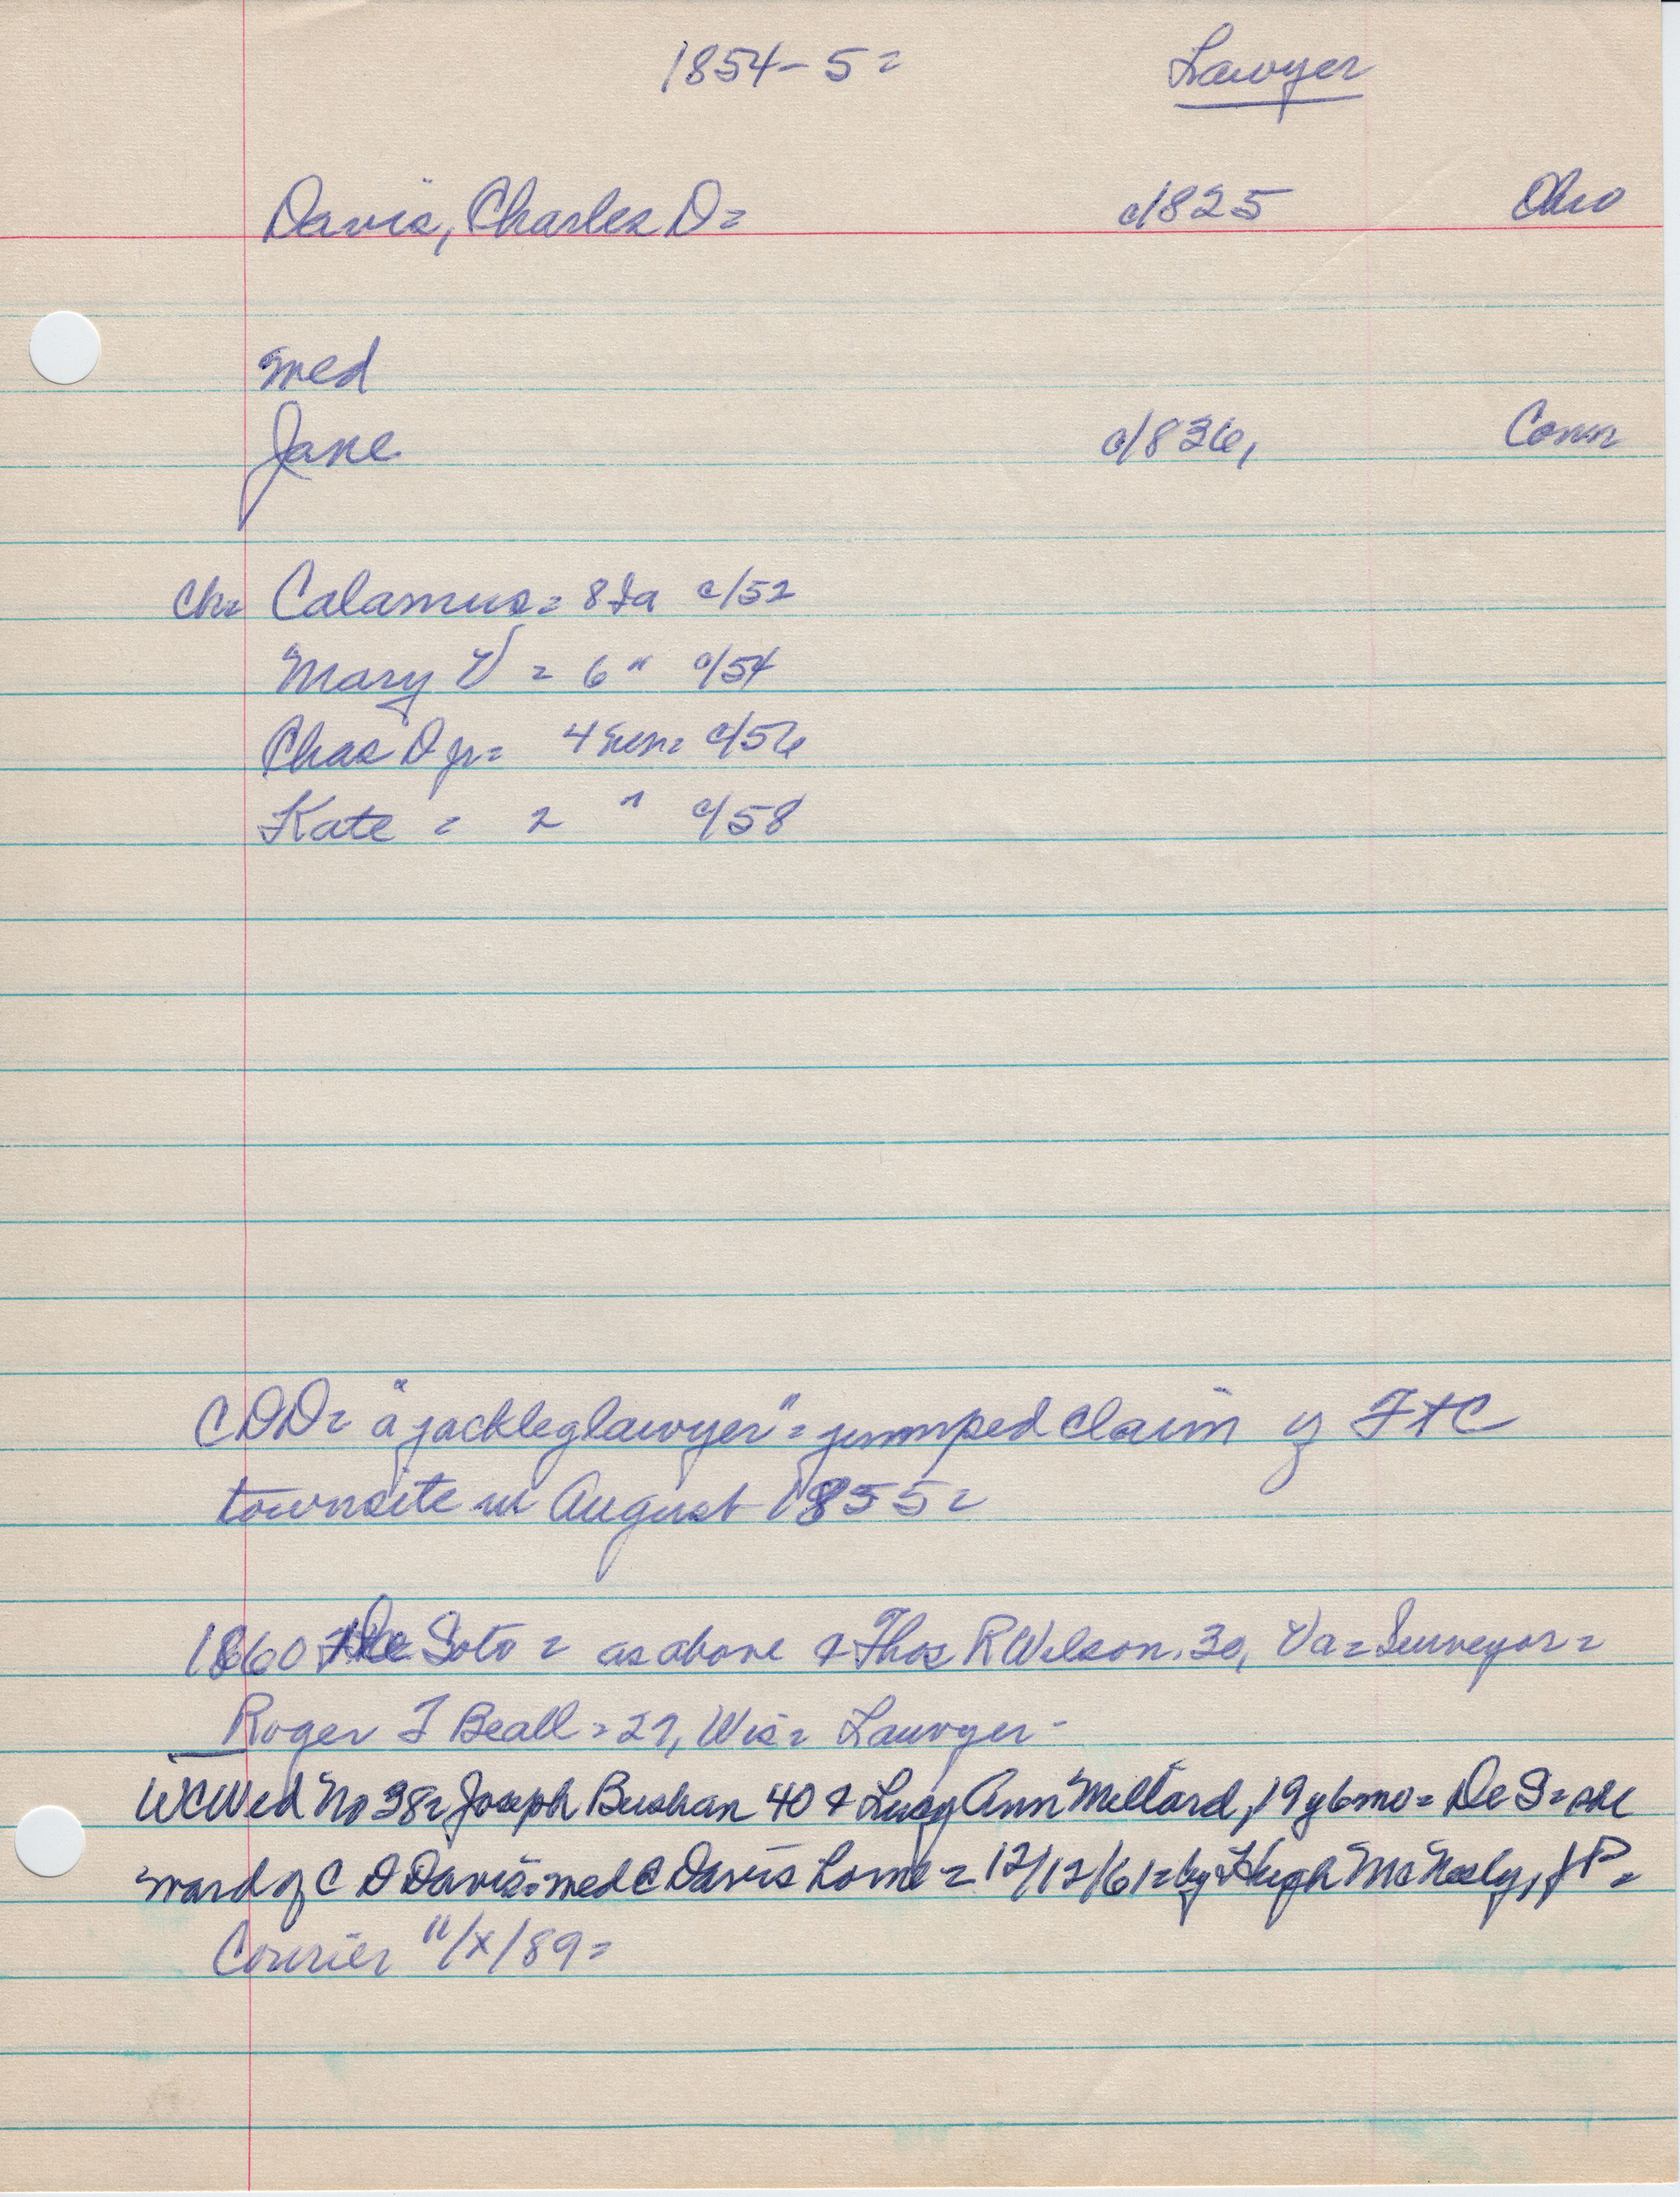 1854-5= Lawyer
Davis, Charles D= c/1825 Ohio
med
Jane c/1836, Conn
Ch= Calamus= 8 Ia c/52
Mary V = 6 " c/54
Chas D jr= 4 Neb= c/56
Kate = 2 " c/58
CDD= "a jackleg lawyer"= jumped claim of FtC
townsite in August 1855=
1860 De Soto = as above & Thos R Wilson. 30, Va= Surveyor=
Roger T Beall= 27, Wis= Lawyer-
WCWed No 38= Joseph Bushan 40 & Lucy Ann Millard, 19y6mo= De S= she
ward of C D Davis= med C Davis home= 12/12/61= by Hugh McNeely, JP=
Courier 11/x/89=